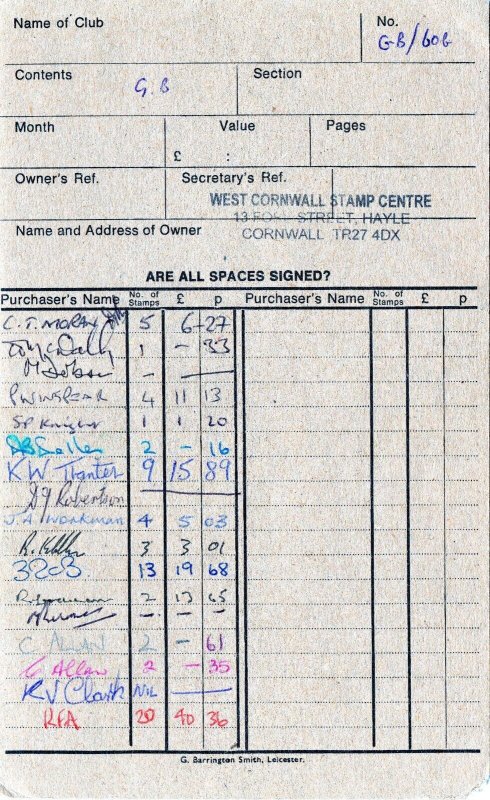 Name of Club No.
GB/60G
Contents Section
G.B
Month Value Pages
£ :
Owner's Ref. Secretary's Ref.
WEST CORNWALL STAMP CENTRE
13 STREET, HAYLE
Name and Address of Owner CORNWALL TR27 4DX
ARE ALL SPACES SIGNED?
Purchaser's Name No. of Stamps £ p Purchaser's Name No. of Stamps £ p
C.T. MORAY 5 6-27
1 - 33
M Dobson -
P WINSPEAR 4 11 13
SP Knight 1 1 20
2 - 16
KW Tranter 9 15 89
Robertson
J.A. WORKMAN 4 5 03
R. 3 3 01
3203 13 19 68
R. 2 13 65
- - -
C ALLAN 2 - 61
C Allan 2 - 35
KV Clark NIL
RFA 20 40 36
G. Barrington Smith, Leicester.